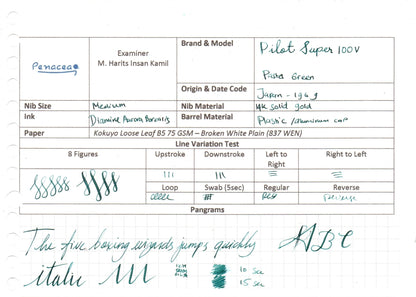 Panacea
Examiner
M. Harits Insan Kamil
Brand & Model
Pilot Super 100V
Green
Origin & Date Code
Japan -
Nib Size
Medium
Nib Material
14k solid gold
Ink
Diamine Aurora Borealis
Barrel Material
Plastic / aluminum cap
Paper
Kokuyo Loose Leaf B5 75 GSM – Broken White Plain (837 WEN)
Line Variation Test
8 Figures
Upstroke
Downstroke
Left to Right
Right to Left
Loop
Swab (5sec)
Regular
Reverse
Reverse
Pangrams
The five boxing wizards jumps quickly
ABC
italic
10 sec
15 sec